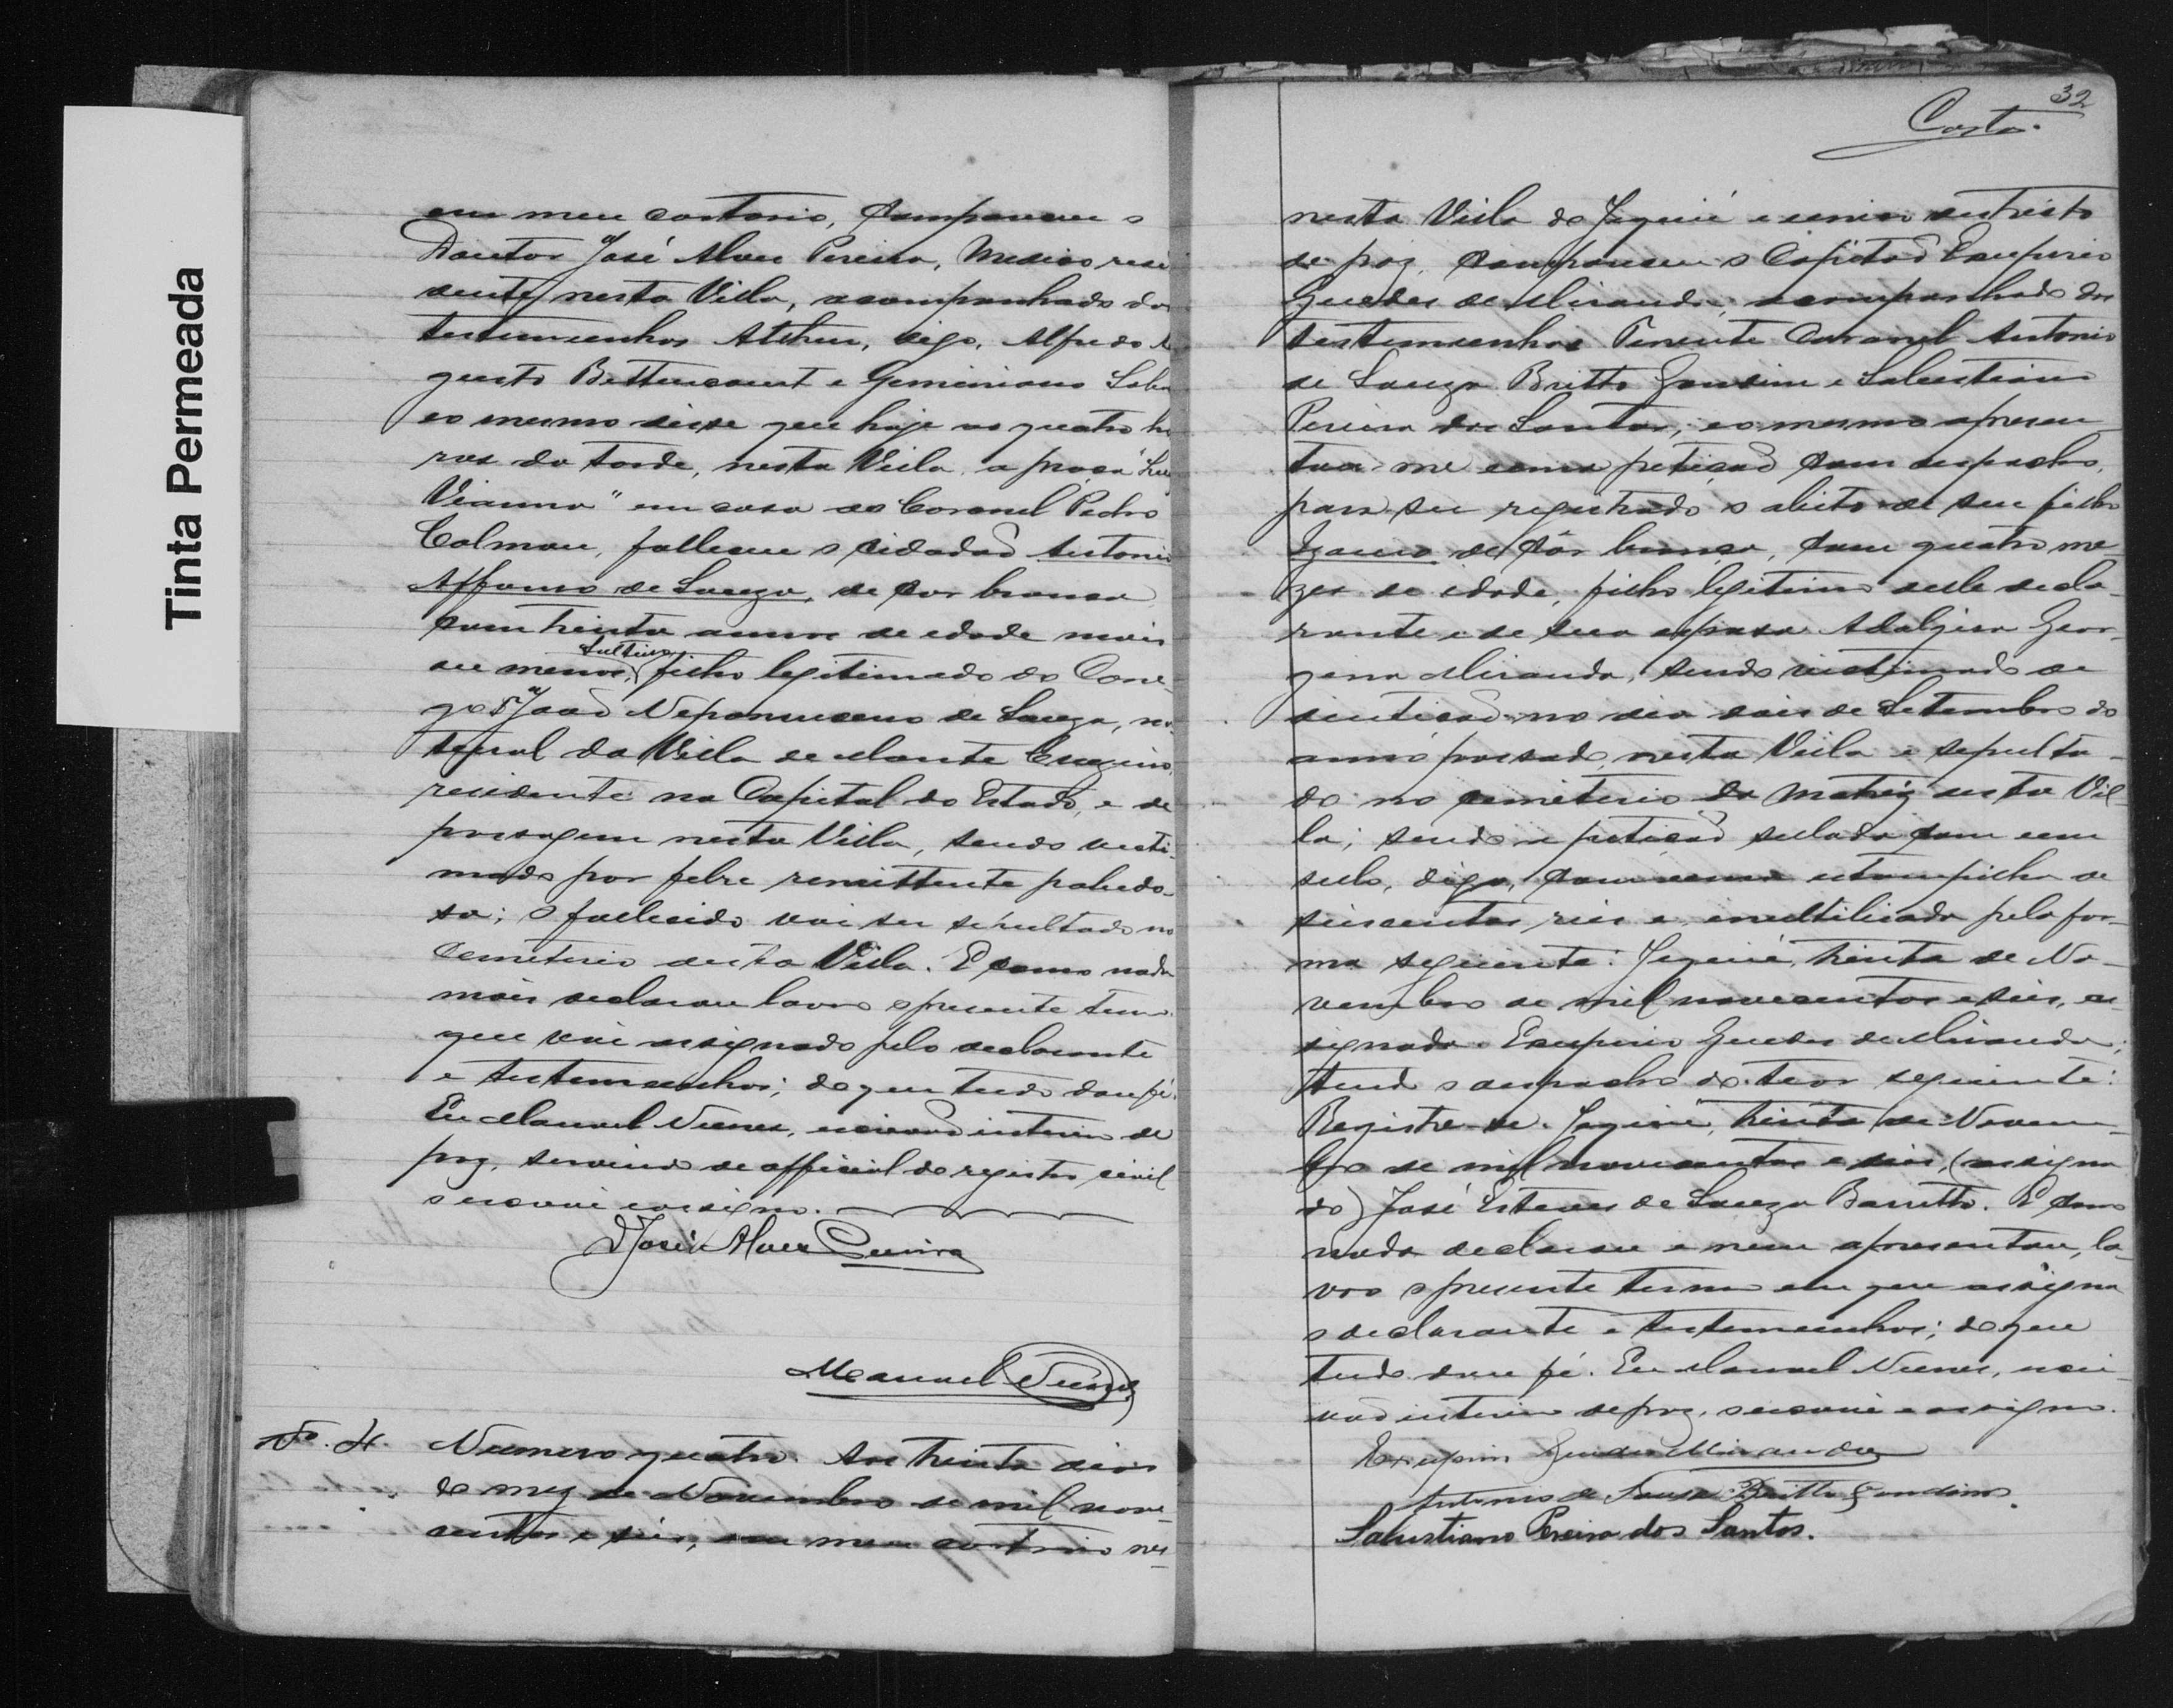 Tinta Permeada
em meu cartorio, compareceu o
Doutor José Alves Pereira, Medico resi
dente nesta Villa, acompanhado das
testemunhas digo, Alfredo A
gusto Bettencourt e Geminiano
e o mesmo disse que hoje as quatro ho
ras da tarde, nesta Villa, a praça "
Vianna" em casa do Coronel Pedro
Calmon, falleceu o cidadaõ Antonio
Affonso de Souza, de cor branca
com trinta annos de edade mais
ou menos, solteiro, filho legitimado do Cone
go João Nepomuceno de Souza, na
tural da Villa de Monte Cruzeiro,
residente na Capital do Estado, e de
passagem nesta Villa, sendo victi-
mado por febre remittente paludo-
sa; o fallecido vai ser sepultado no
Cemeterio desta Villa. E como nada
mais declarou lavro o presente termo
que vai assignado pelo declarante
e testemunhas; do que tudo dou fé.
Eu Manuel Nunes, escrivaõ interino de
paz, servindo de official do registro civil
o escrevi e assigno.
Dr José Alves Pereira
Manuel Nunes
Nº. 4. Numero quatro. Aos trinta dias
do mez de Novembro de mil nove-
centos e seis, em meu cartorio nes-
32
Costa.
nesta Villa de Jequié e unico districto
de paz, compareceu o Capitaõ Exuperio
Guedes de Miranda, acompanhado das
testemunhas Tenente Coronel Antonio
de Souza Britto Gondim e Salustiano
Pereira dos Santos; e o mesmo apresen-
tou-me uma petiçaõ com despacho,
para ser registrado o obito de seu filho
de côr branca, com quatro me-
zes de edade, filho legitimo delle decla-
rante e de sua esposa Adalgisa Geor-
gena Miranda, sendo victimado de
dentiçaõ no dia dois de Setembro do
anno passado, nesta Villa e sepulta-
do no cemeterio da Matriz desta Vil-
la; sendo a petiçaõ sellada com um
sello, digo, com uma estampilha de
duscentos reis e inutilisada pela for-
ma seguinte: Jequié, trinta de No-
vembro de mil novecentos e seis, as-
signado. Exuperio Guedes de Miranda;
tendo o despacho do teor seguinte:
Registre-se. Jequié, trinta de Novem-
bro de mil novecentos e seis, (assigna
do) José Esteves de Souza Barretto. E como
nada declarou e nem apresentou, la-
vro o presente termo em que assigna
o declarante e testemunhas; do que
tudo dou fé. Eu Manuel Nunes, escri-
vaõ interino de paz, o escrevi e assigno.
Exuperio Guedes Miranda
Antonio de Souza Britto Gondim.
Salustiano Pereira dos Santos.